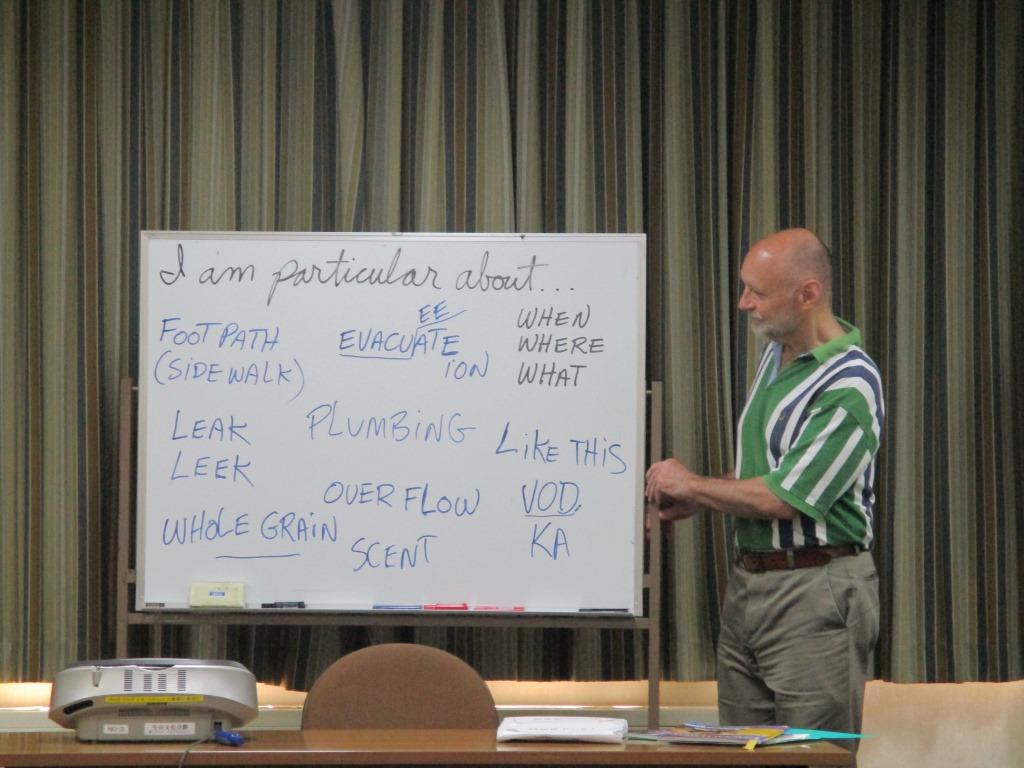 I am particular about...
FOOTPATH
(SIDEWALK)
EE
EVACUATE
ION
WHEN
WHERE
WHAT
LEAK
LEEK
PLUMBING
LIKE THIS
VOD.
KA
OVERFLOW
WHOLE GRAIN
SCENT
NO-3